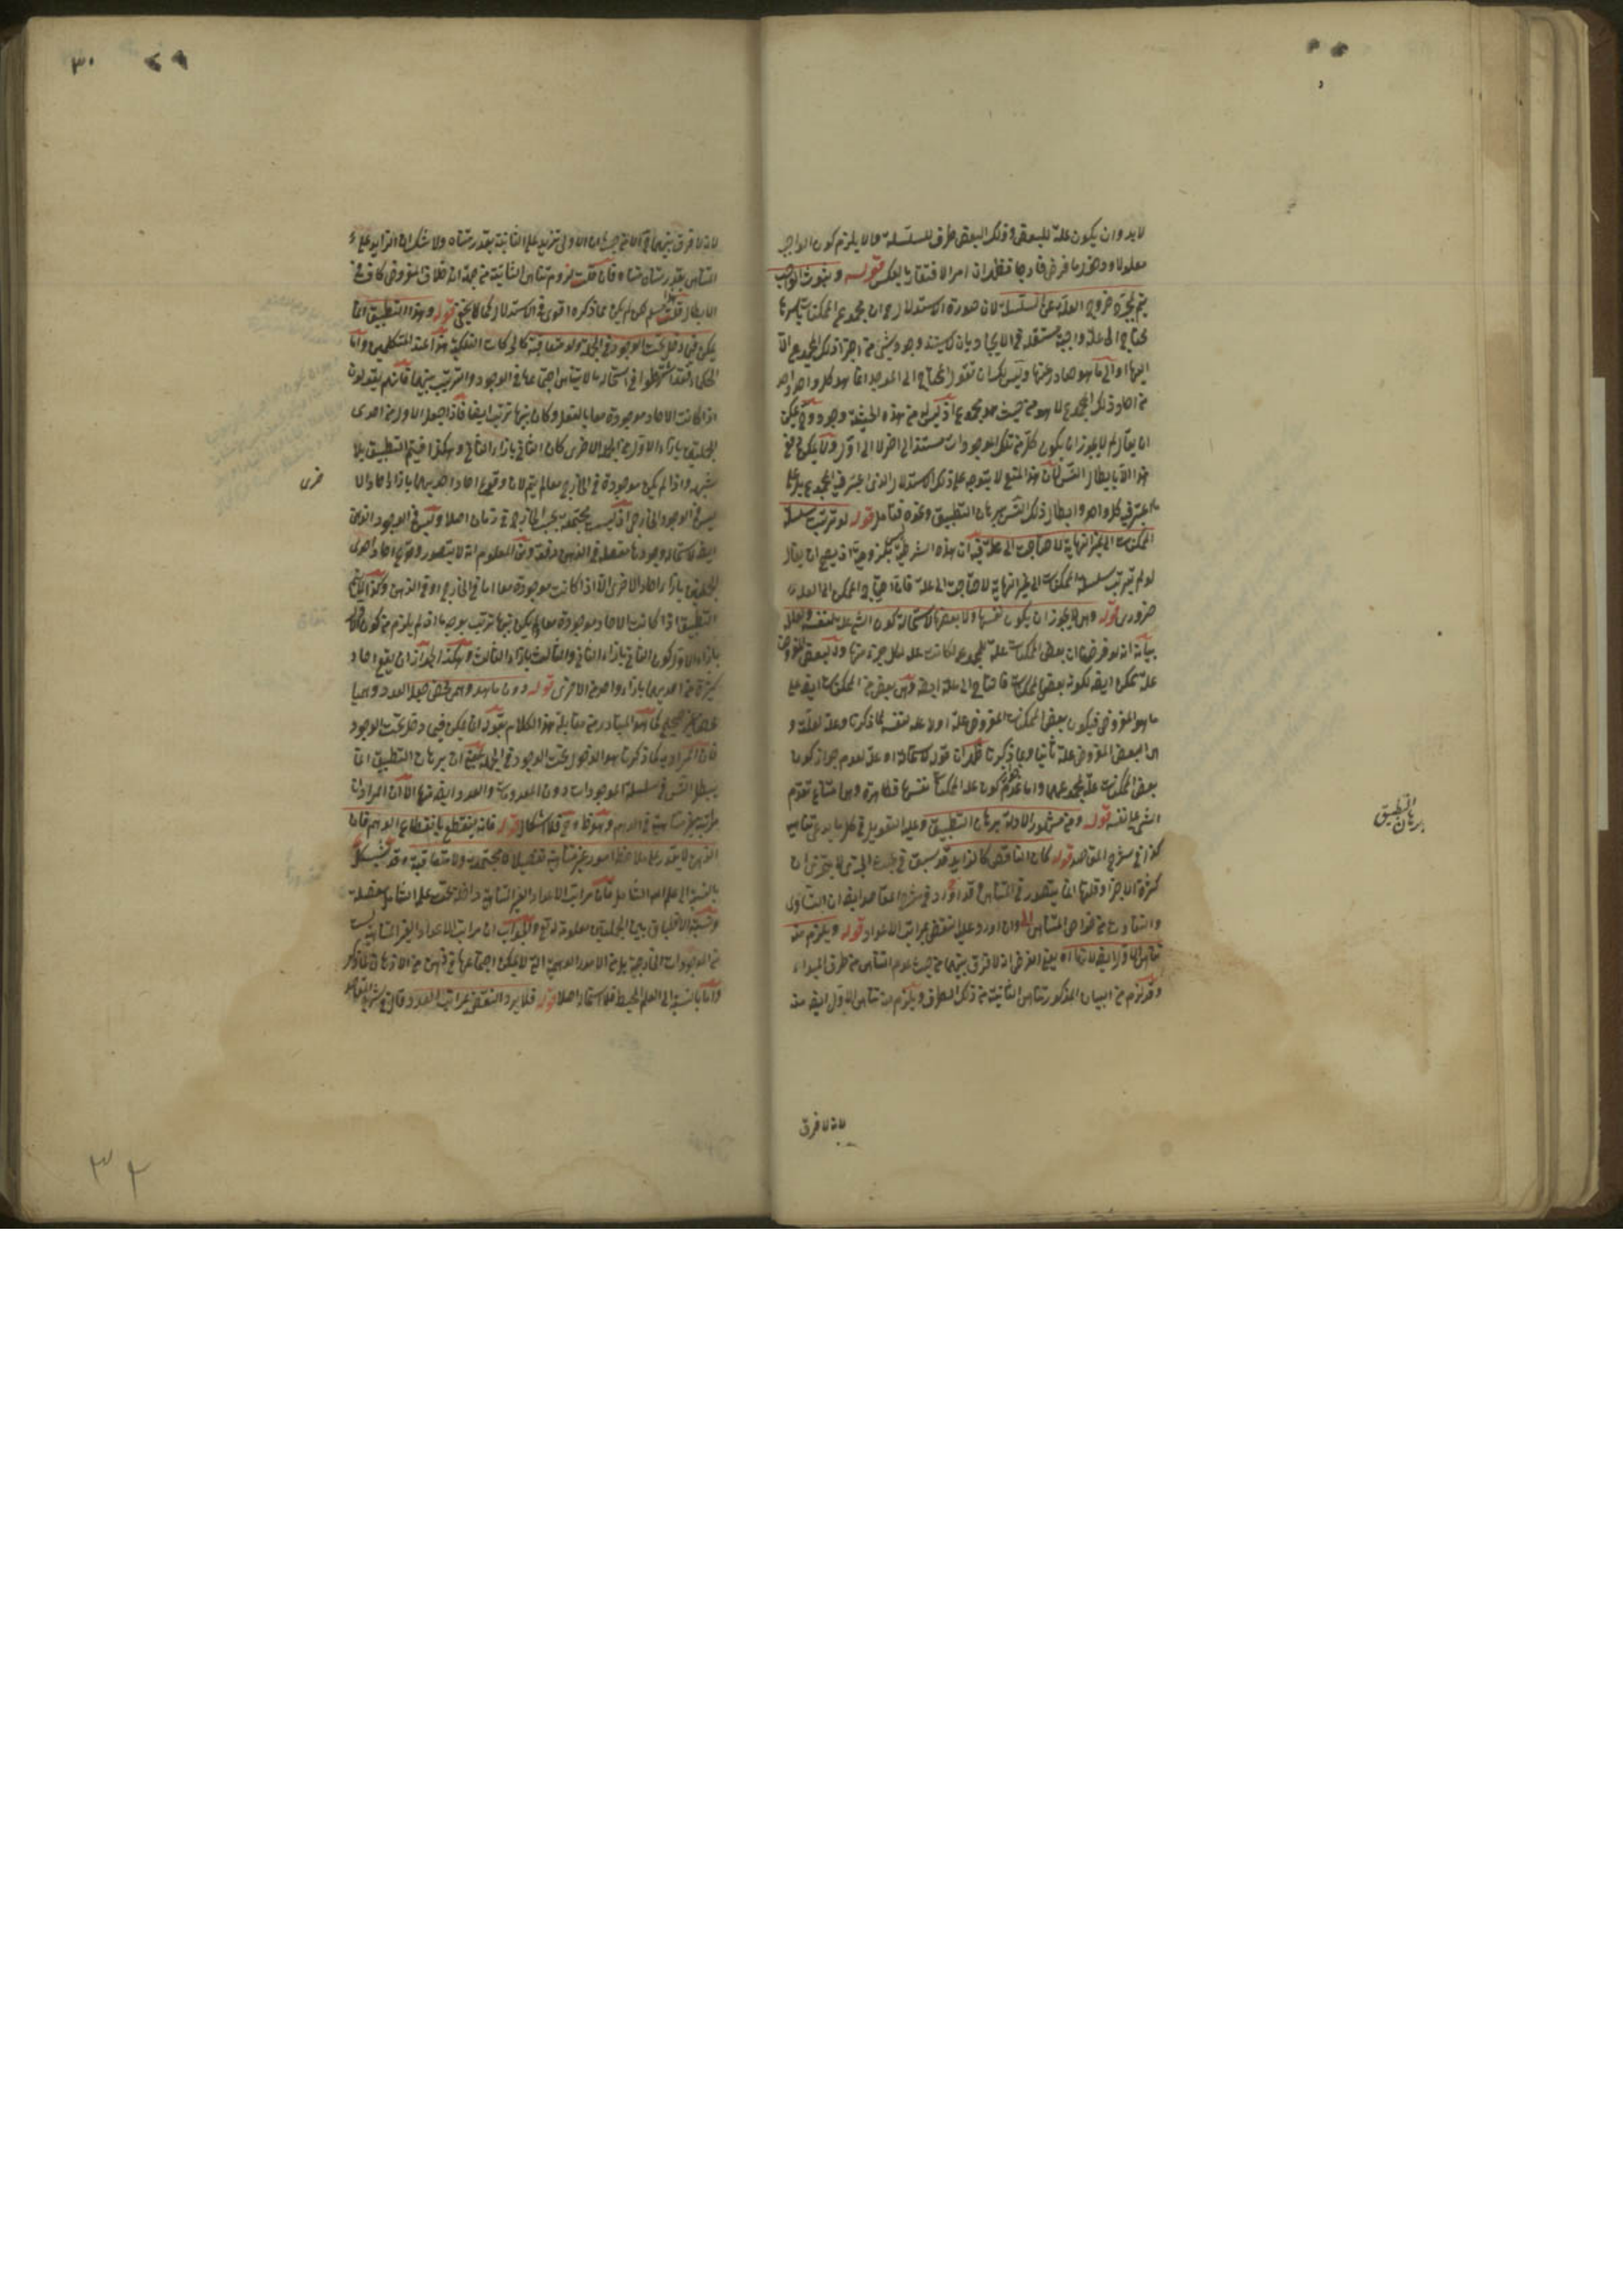 لا بد وان يكون علة للبعض وذلك البعض طرف للسلسلة والا يلزم كون الواجب
معلولا ودخول ما فرض خارجا فظهر ان امر الافتقار بالعكس قوله وثبوت الواجب
يتم بمجرد خروج العلة عن السلسلة لان صورة الاستدلال ان مجموع الممكنات باسرها
يحتاج الى علة واجبة مستقلة في الايجاد بان لا يستند وجود شيء من اجزاء ذلك المجموع الا
اليها او الى ما هو صادر عنها وليس لك ان تقول المحتاج الى الموجد انما هو كل واحد واحد
من احاد ذلك المجموع لا هو من حيث هو مجموع اذ ليس له من هذه الحيثية وجود ويمكن
ان يقال لم لا يجوز ان يكون كل من تلك الموجودات مستندا الى اخر لا الى اول ولا يمكن دفع
هذا الا بابطال التس لان هذا المنع لا يتوجه على ذلك الاستدلال الذي اعتبر فيه المجموع بل على
ما اعتبر فيه كل واحد وابطال ذلك التس ببرهان التطبيق وغيره فتأمل قوله لو ترتب سلسلة
الممكنات الى غير النهاية لاحتاجت الى علة فيه ان هذه الشرطية لزومية اذ يصح ان يقال
لو لم تترتب سلسلة الممكنات الى غير النهاية لاحتاجت الى علة فان احتياج الممكن الى العلة
ضروري قوله وهي لا يجوز ان يكون نفسها ولا بعضها لاستحالة كون الشيء علة لنفسه ولعلله
بيانه انه لو فرضنا ان بعض الممكنات علة للمجموع لكانت علة لكل جزء منها والبعض المفروض
علة ممكن ايضا لكونه بعض الممكنات فاحتاج الى علة ايضا وهي بعض من الممكنات ايضا على
ما هو المفروض فيكون بعض الممكنات المفروض علة اولا علة لنفسه لما ذكرنا وعلة لعلته و
هي البعض المفروض علة ثانيا وبما ذكرنا ظهر ان قوله لاستحالة اه علة لعدم جواز كون
بعض الممكنات علة لمجموعها واما عدم كون علة الممكنات نفسها فظاهرة وهي امتناع تقدم
الشيء على نفسه قوله ومن مشهور الادلة برهان التطبيق وعليه التعويل في كل ما يدعى تناهيه
كذا في شرح المقاصد قوله كان الناقص كالزايد قد سبق في بحث الجزء الذي لا يتجزى ان
كثرة الاجزاء وقلتها انما يتصور في المتناهي وقد اورد في شرح المقاصد ايضا ان التساوي
والتفاوت من خواص المتناهي وان اورد عليه النقض بمراتب الاعداد قوله ويلزم منه
تناهي الاولى ايضا لانها اه يعني الفرض انه لا فرق بينهما من حيث عدم التناهي من طرف المبدأ
وقد لزم من البيان المذكور تناهي الثانية من ذلك الطرف ويلزم منه تناهي الاولى ايضا منه
برهان التطبيق
لانه لا فرق
٣٠ ٢٩
لانه لا فرق بينهما في الا من حيث ان الاولى تزيد على الثانية بقدر متناه ولا شك ان الزايد على
المتناهي بقدر متناه متناه فان قلت لزوم تناهي الثانية من جهة انه خلاف المفروض كاف في
الابطال قلت مسلم لكن ما ذكره اقوى في الاستدلال كما لا يخفى قوله وهذا التطبيق انما
يمكن فيما دخل تحت الوجود في الجملة ولو متعاقبة كالحركات الفلكية هذا عند المتكلمين واما
الحكماء فقد اشترطوا في استحالة ما لا يتناهى اجتماعها في الوجود والترتيب بينها فانهم يقولون
اذا كانت الاحاد موجودة معا بالفعل وكان بينها ترتب ايضا فاذا جعل الاول من احدى
الجملتين بازاء الاول من الجملة الاخرى كان الثاني بازاء الثاني وهكذا فيتم التطبيق بلا
شبهة واذا لم يكن موجودة في الخارج معا لم يتم لان وقوع احاد احديهما بازاء احاد الا
خرى
ليس في الوجود الخارجي اذ ليست مجتمعة بحسب الخارج في زمان اصلا وليس في الوجود الذهني
ايضا لاستحالة وجودها مفصلة في الذهن دفعة ومن المعلوم انه لا يتصور وقوع احاد احدى
الجملتين بازاء احاد الاخرى الا اذا كانت موجودة معا اما في الخارج او في الذهن وكذا لا يتم
التطبيق اذا كانت الاحاد موجودة معا ولم يكن بينها ترتب بوجه ما اذ لم يلزم من كون الاول
بازاء الاول كون الثاني بازاء الثاني والثالث بازاء الثالث وهكذا لجواز ان يقع احاد
كثيرة من احديهما بازاء واحد من الاخرى قوله دون ما هو وهمي محض
كما هو المتبادر من مقابلة هذا الكلام بقوله انما يمكن فيما دخل تحت الوجود
فان المراد به كما ذكرنا هو الدخول تحت الوجود في الجملة ان برهان التطبيق انما
يبطل التس في سلسلة الموجودات دون المعدومات والعدد ايضا منها الا ان المراد ان
مراتبه غير متناهية في الوهم فلا اشكال قوله فانه ينقطع بانقطاع الوهم فان
الذهن لا يقدر على ملاحظة امور غير متناهية تفصيلا لا مجتمعة ولا متعاقبة وقد يستشكل
بالنسبة الى علم الله الشامل فان مراتب الاعداد الغير المتناهية داخلة تحت علمه الشامل مفصلة
ونسبة الانطباق بين الجملتين معلومة له تع والجواب ان مراتب الاعداد الغير المتناهية ليست
من الموجودات الخارجية بل من الامور الوهمية التي لا يمكن اجتماعها في ذهن من الاذهان كما ذكر
واما بالنسبة الى العلم المحيط فلا استحالة اصلا قوله فلا يرد النقض بمراتب العدد وقال في شرح المقاصد
٣٢